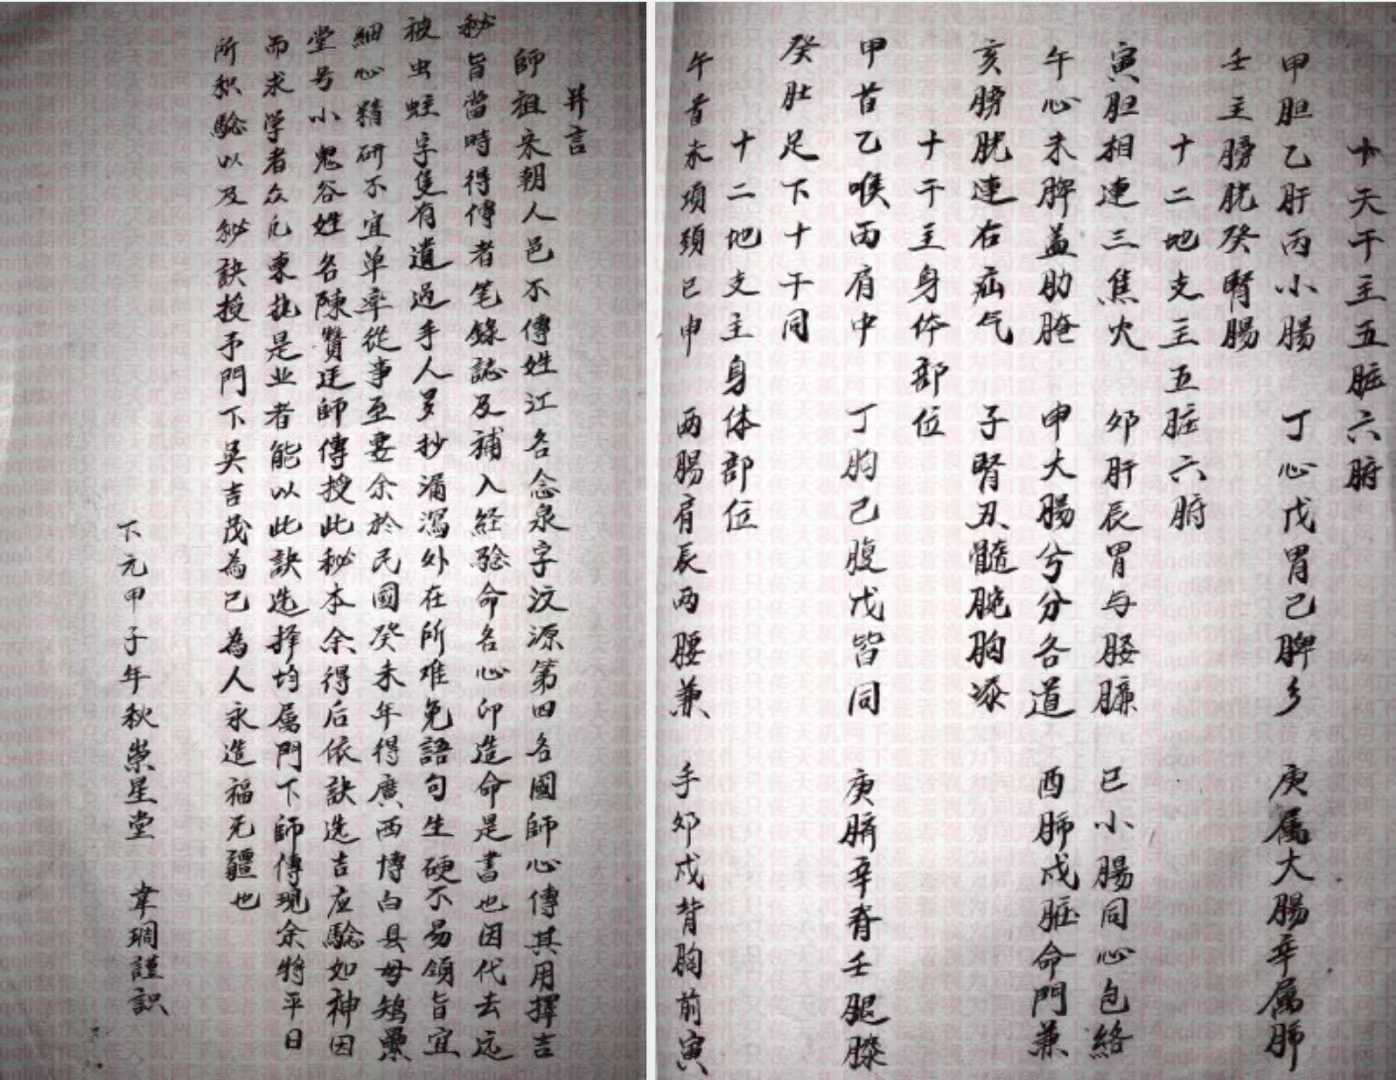 十天干主五脏六腑
甲胆乙肝丙小腸 丁心戊胃己脾乡 庚属大腸辛属肺
壬主膀胱癸腎腸
十二地支主五脏六腑
寅胆相連三焦火 夘肝辰胃与胺臁 巳小腸同心包絡
午心未脾益肋腌 申大腸兮分各道 酉肺戍脏命門兼
亥膀胱連右疝气 子腎丑髓腕胸漆
十干主身体部位
甲首乙喉丙肩中 丁胸己腹戊皆同 庚臍辛脊壬腿膝
癸肚足下十干同
十二地支主身体部位
午首未項頚巳申 両腸肩辰両腰兼 手夘戍背胸前寅
弁言
師祖宋朝人邑不傳姓江名念泉字汶源第四名國師心傳其用擇吉
秘旨當時得傳者笔錄誌及補入經驗命名心印造命是書也因代去远
被虫蛀字隻有遺過手人多抄漏寫外在所难免語句生硬不易領旨宜
細心精研不宜单率從事至要余於民國癸未年得廣西博白县毋鴆纍
堂号小鬼谷姓名陳贊廷師傳授此秘本余得后依訣选吉应驗如神因
而求学者众凡東执是业者能以此訣选擇均属門下師傳現余將平日
所积驗以及秘訣授予門下吴吉茂為己為人永造福无疆也
下元甲子年秋紫星堂 韋琱謹識